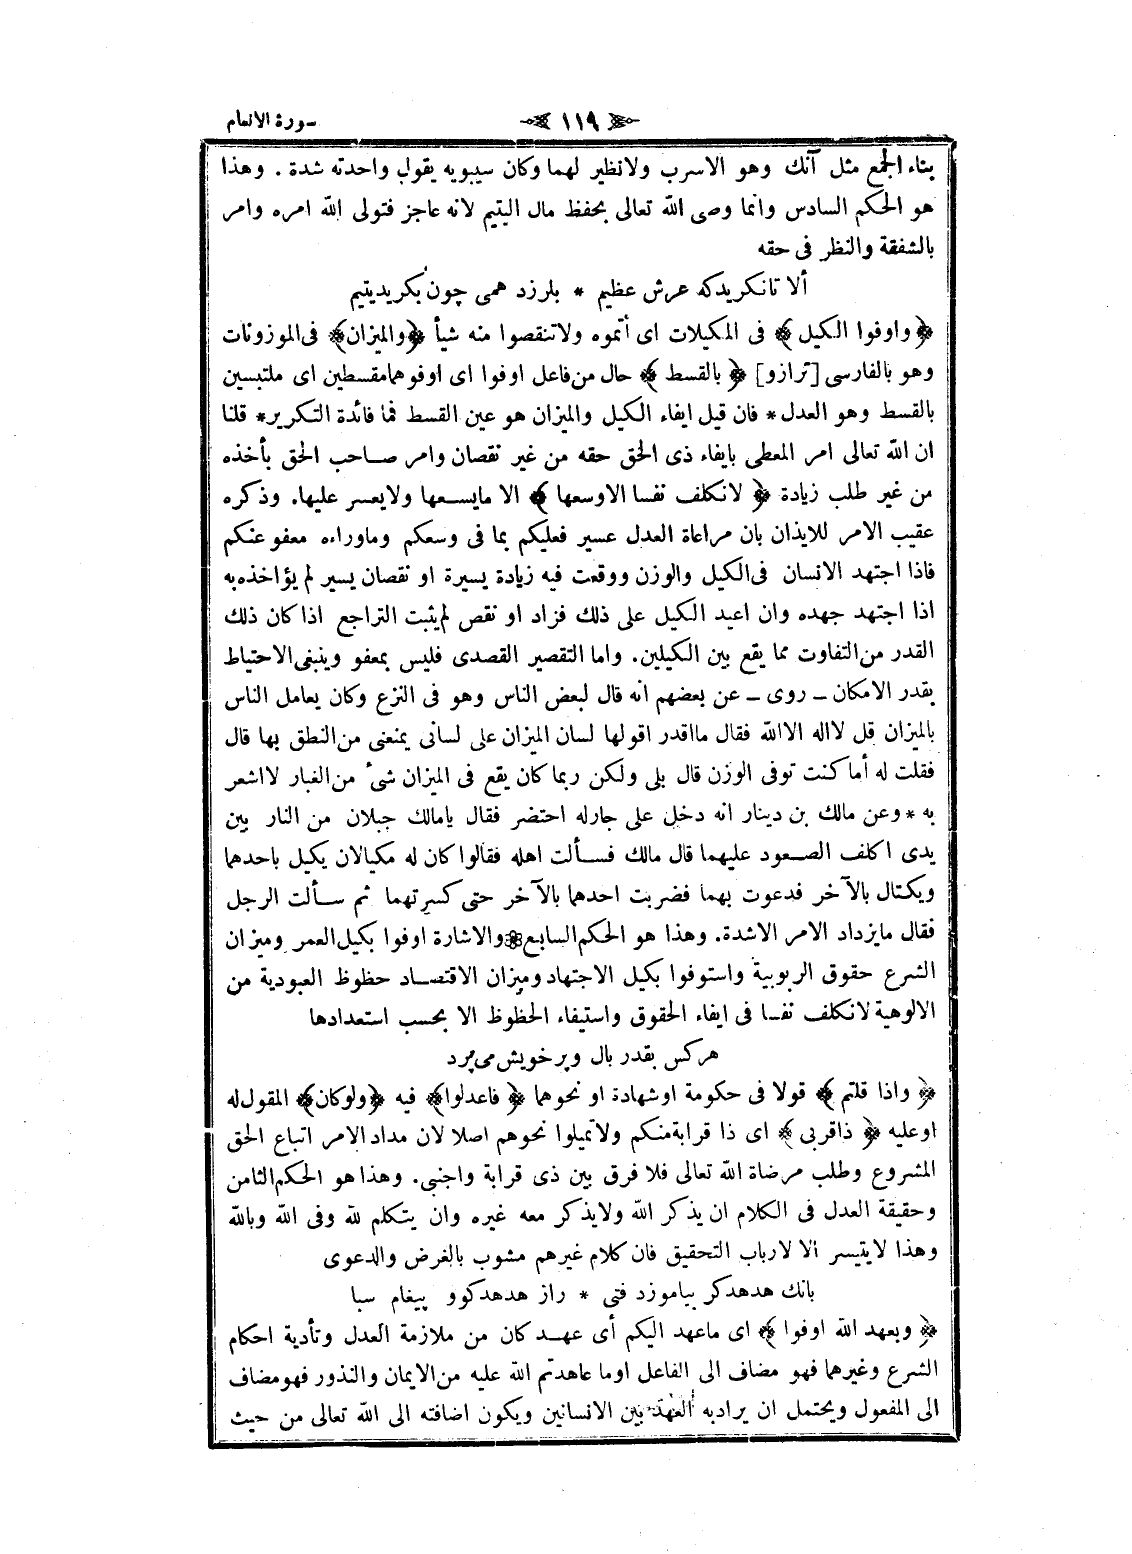 سورة الانعام
١١٩
بناء الجمع مثل آنك وهو الاسرب ولانظير لهما وكان سيبويه يقول واحدته شدة . وهذا
هو الحكم السادس وانما وصى الله تعالى بحفظ مال اليتيم لانه عاجز فتولى الله امره وامر
بالشفقة والنظر فى حقه
ألا تانكريدكه عرش عظيم * بلرزد همى چون بكريديتيم
﴿ واوفوا الكيل ﴾ فى المكيلات اى أتموه ولاتنقصوا منه شيأ ﴿والميزان﴾ فى الموزونات
وهو بالفارسى [ترازو] ﴿ بالقسط ﴾ حال من فاعل اوفوا اى اوفوهما مقسطين اى ملتبسين
بالقسط وهو العدل * فان قيل ايفاء الكيل والميزان هو عين القسط فما فائدة التكرير * قلنا
ان الله تعالى امر المعطى بايفاء ذى الحق حقه من غير نقصان وامر صاحب الحق بأخذه
من غير طلب زيادة ﴿ لانكلف نفسا الاوسعها ﴾ الا مايسعها ولايعسر عليها. وذكره
عقيب الامر للايذان بان مراعاة العدل عسير فعليكم بما فى وسعكم وماوراءه معفو عنكم
فاذا اجتهد الانسان فى الكيل والوزن ووقعت فيه زيادة يسيرة او نقصان يسير لم يؤاخذ به
اذا اجتهد جهده وان اعيد الكيل على ذلك فزاد او نقص لم يثبت التراجع اذا كان ذلك
القدر من التفاوت مما يقع بين الكيلين. واما التقصير القصدى فليس بمعفو وينبغى الاحتياط
بقدر الامكان ــ روى ــ عن بعضهم انه قال لبعض الناس وهو فى النزع وكان يعامل الناس
بالميزان قل لااله الاالله فقال مااقدر اقولها لسان الميزان على لسانى يمنعنى من النطق بها قال
فقلت له أما كنت توفى الوزن قال بلى ولكن ربما كان يقع فى الميزان شئ من الغبار لااشعر
به * وعن مالك بن دينار انه دخل على جارله احتضر فقال يامالك جبلان من النار بين
يدى اكلف الصعود عليهما قال مالك فسألت اهله فقالوا كان له مكيالان يكيل باحدهما
ويكتال بالآخر فدعوت بهما فضربت احدهما بالآخر حتى كسرتهما ثم سألت الرجل
فقال مايزداد الامر الاشدة. وهذا هو الحكم السابع والاشارة اوفوا بكيل العمر وميزان
الشرع حقوق الربوبية واستوفوا بكيل الاجتهاد وميزان الاقتصاد حظوظ العبودية من
الالوهية لانكلف نفسا فى ايفاء الحقوق واستيفاء الحظوظ الا بحسب استعدادها
هركس بقدر بال وپر خويش مى پرد
﴿ واذا قلتم ﴾ قولا فى حكومة اوشهادة او نحوهما ﴿ فاعدلوا﴾ فيه ﴿ولوكان﴾ المقول له
اوعليه ﴿ ذاقربى ﴾ اى ذا قرابة منكم ولاتميلوا نحوهم اصلا لان مداد الامر اتباع الحق
المشروع وطلب مرضاة الله تعالى فلا فرق بين ذى قرابة واجنبى. وهذا هو الحكم الثامن
وحقيقة العدل فى الكلام ان يذكر الله ولايذكر معه غيره وان يتكلم لله وفى الله وبالله
وهذا لايتيسر الا لارباب التحقيق فان كلام غيرهم مشوب بالغرض والدعوى
بانك هدهدكر بياموزد فتى * راز هدهدكوو پيغام سبا
﴿ وبعهد الله اوفوا ﴾ اى ماعهد اليكم أى عهد كان من ملازمة العدل وتأدية احكام
الشرع وغيرهما فهو مضاف الى الفاعل اوما عاهدتم الله عليه من الايمان والنذور فهو مضاف
الى المفعول ويحتمل ان يرادبه العهد بين الانسانين ويكون اضافته الى الله تعالى من حيث